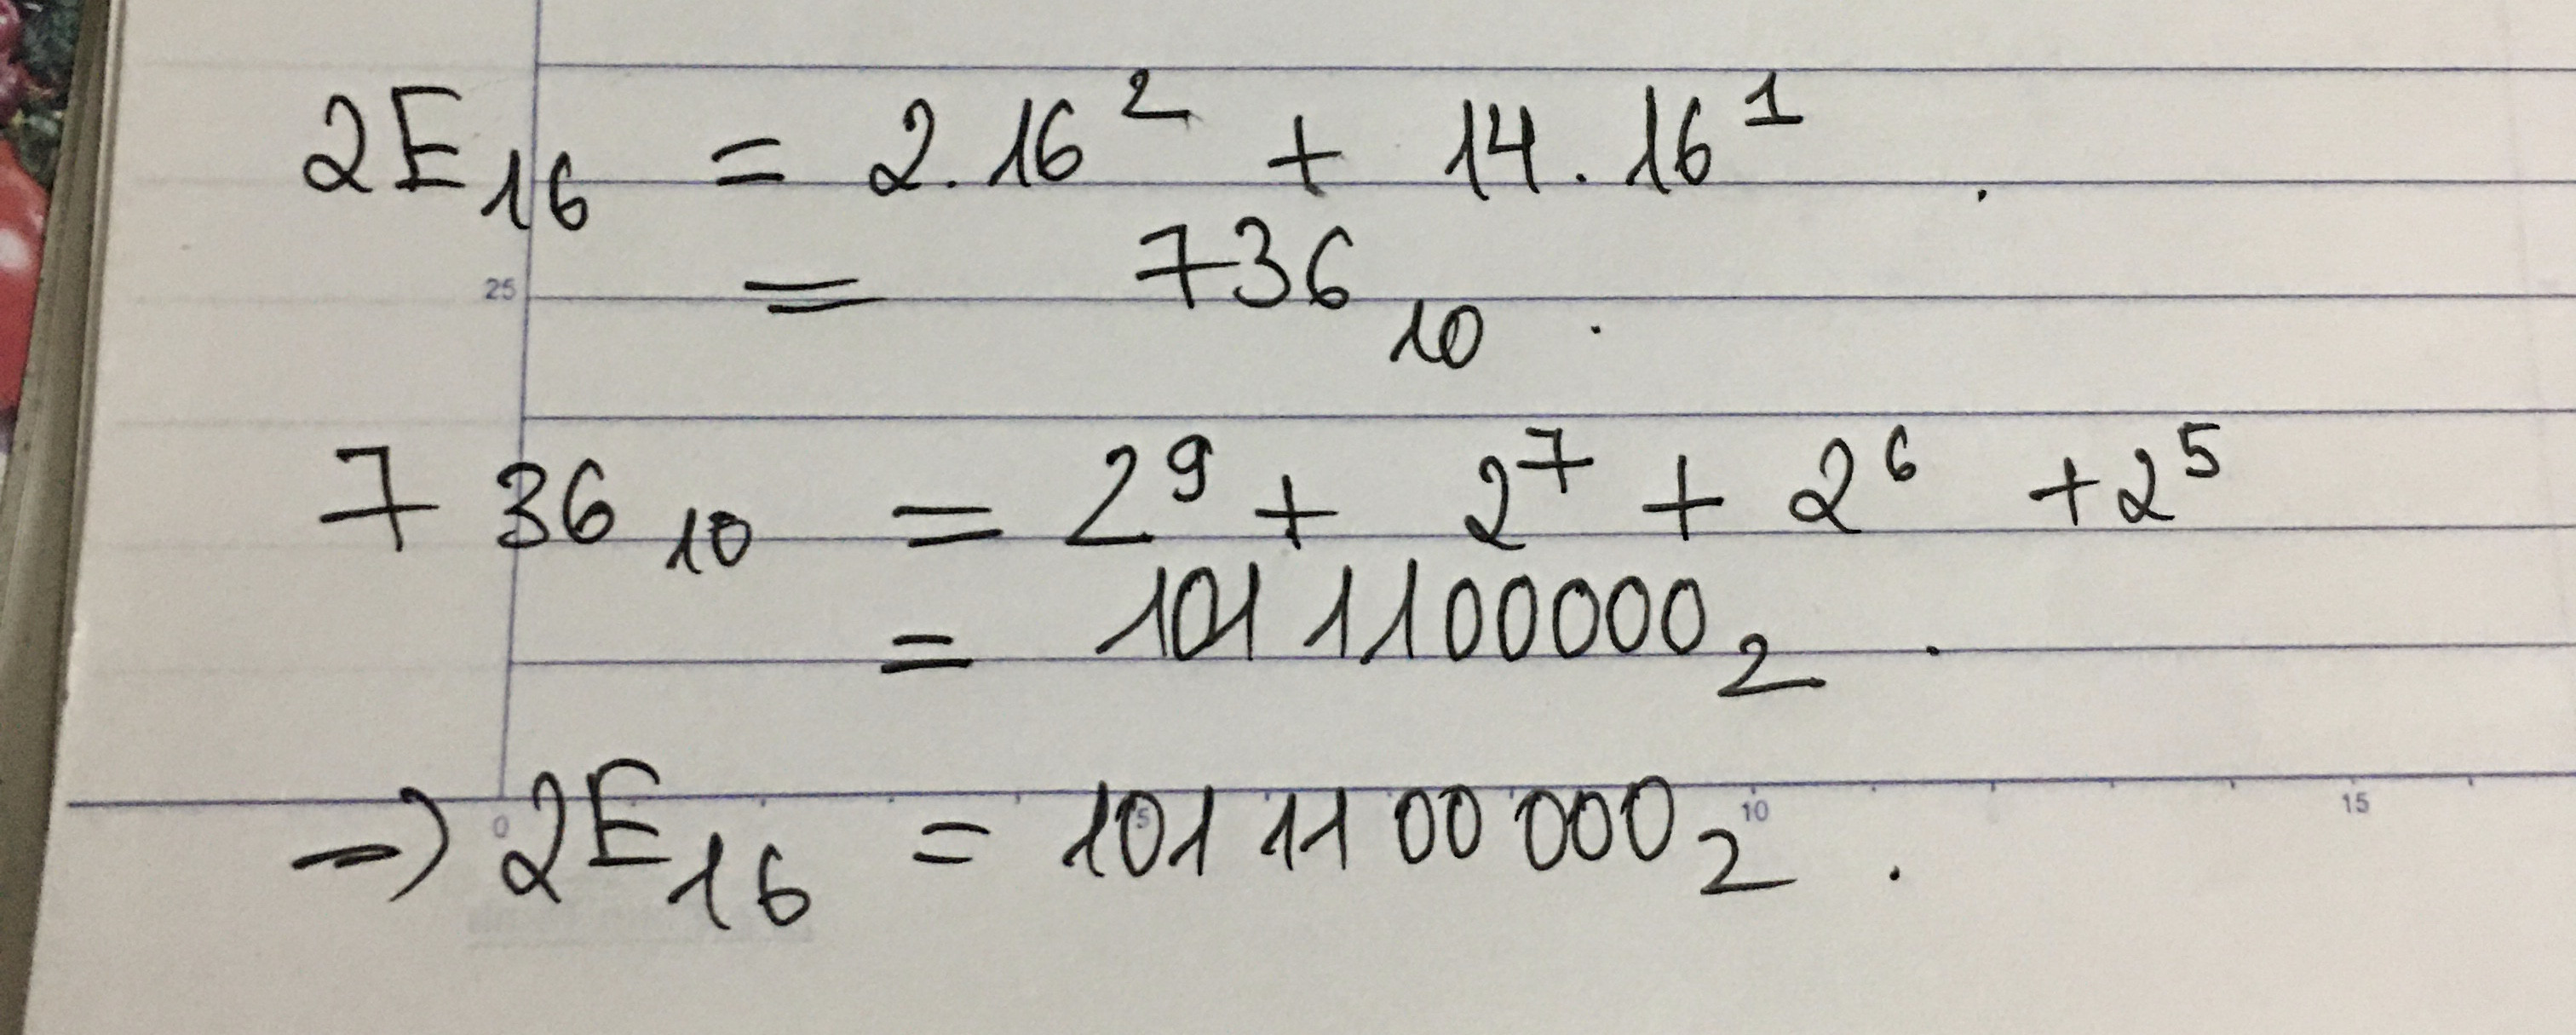 2E₁₆ = 2.16² + 14.16¹ .
25
= 736₁₀ .
736₁₀ = 2⁹ + 2⁷ + 2⁶ + 2⁵
= 1011100000₂ .
0 5 10 15
⇒ 2E₁₆ = 1011100000₂ .